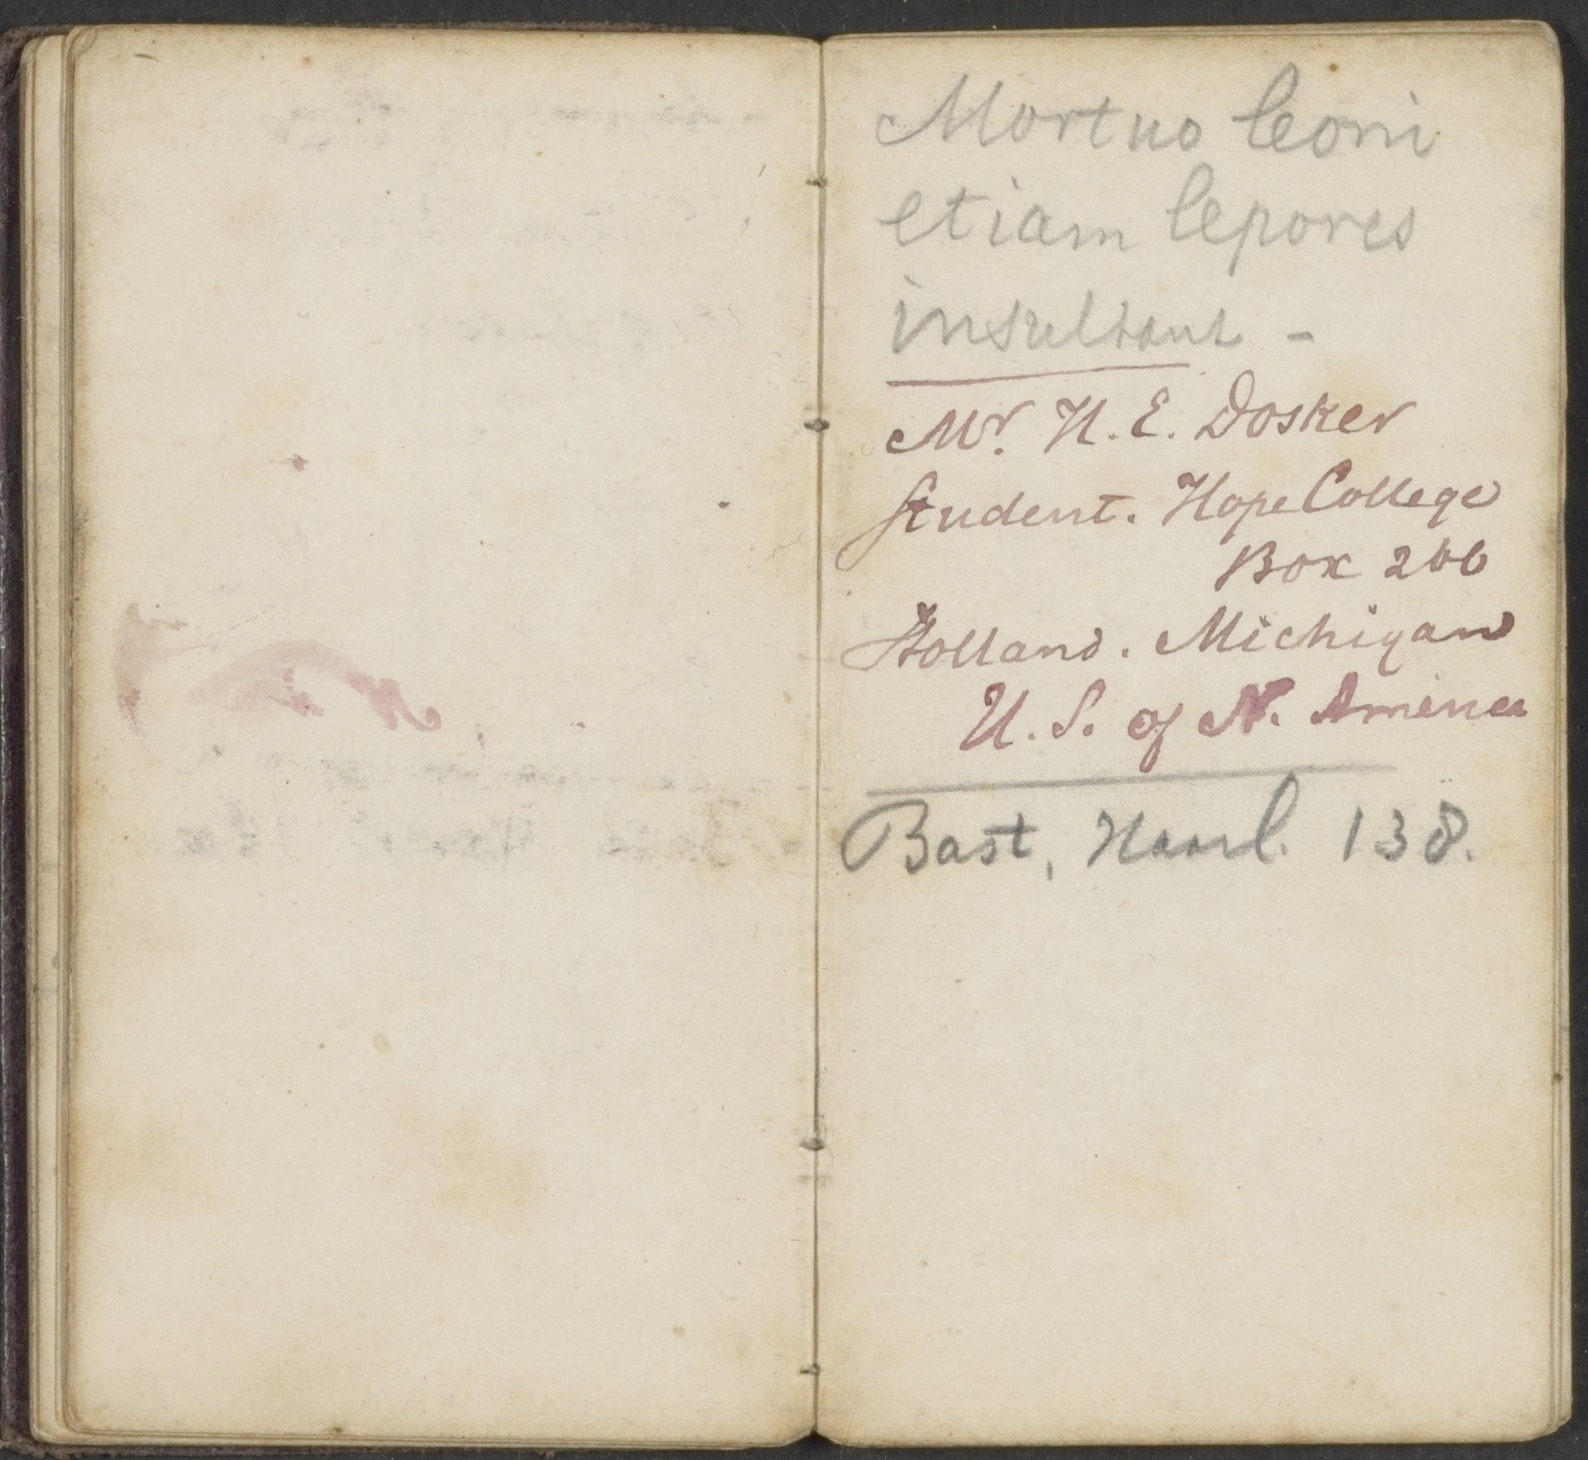 Mortuo leoni
etiam lepores
insultant -
Mr. H. E. Dosker
Student. Hope College
Box 266
Holland. Michigan
U. S. of N. America
Bast, Haarl. 138.